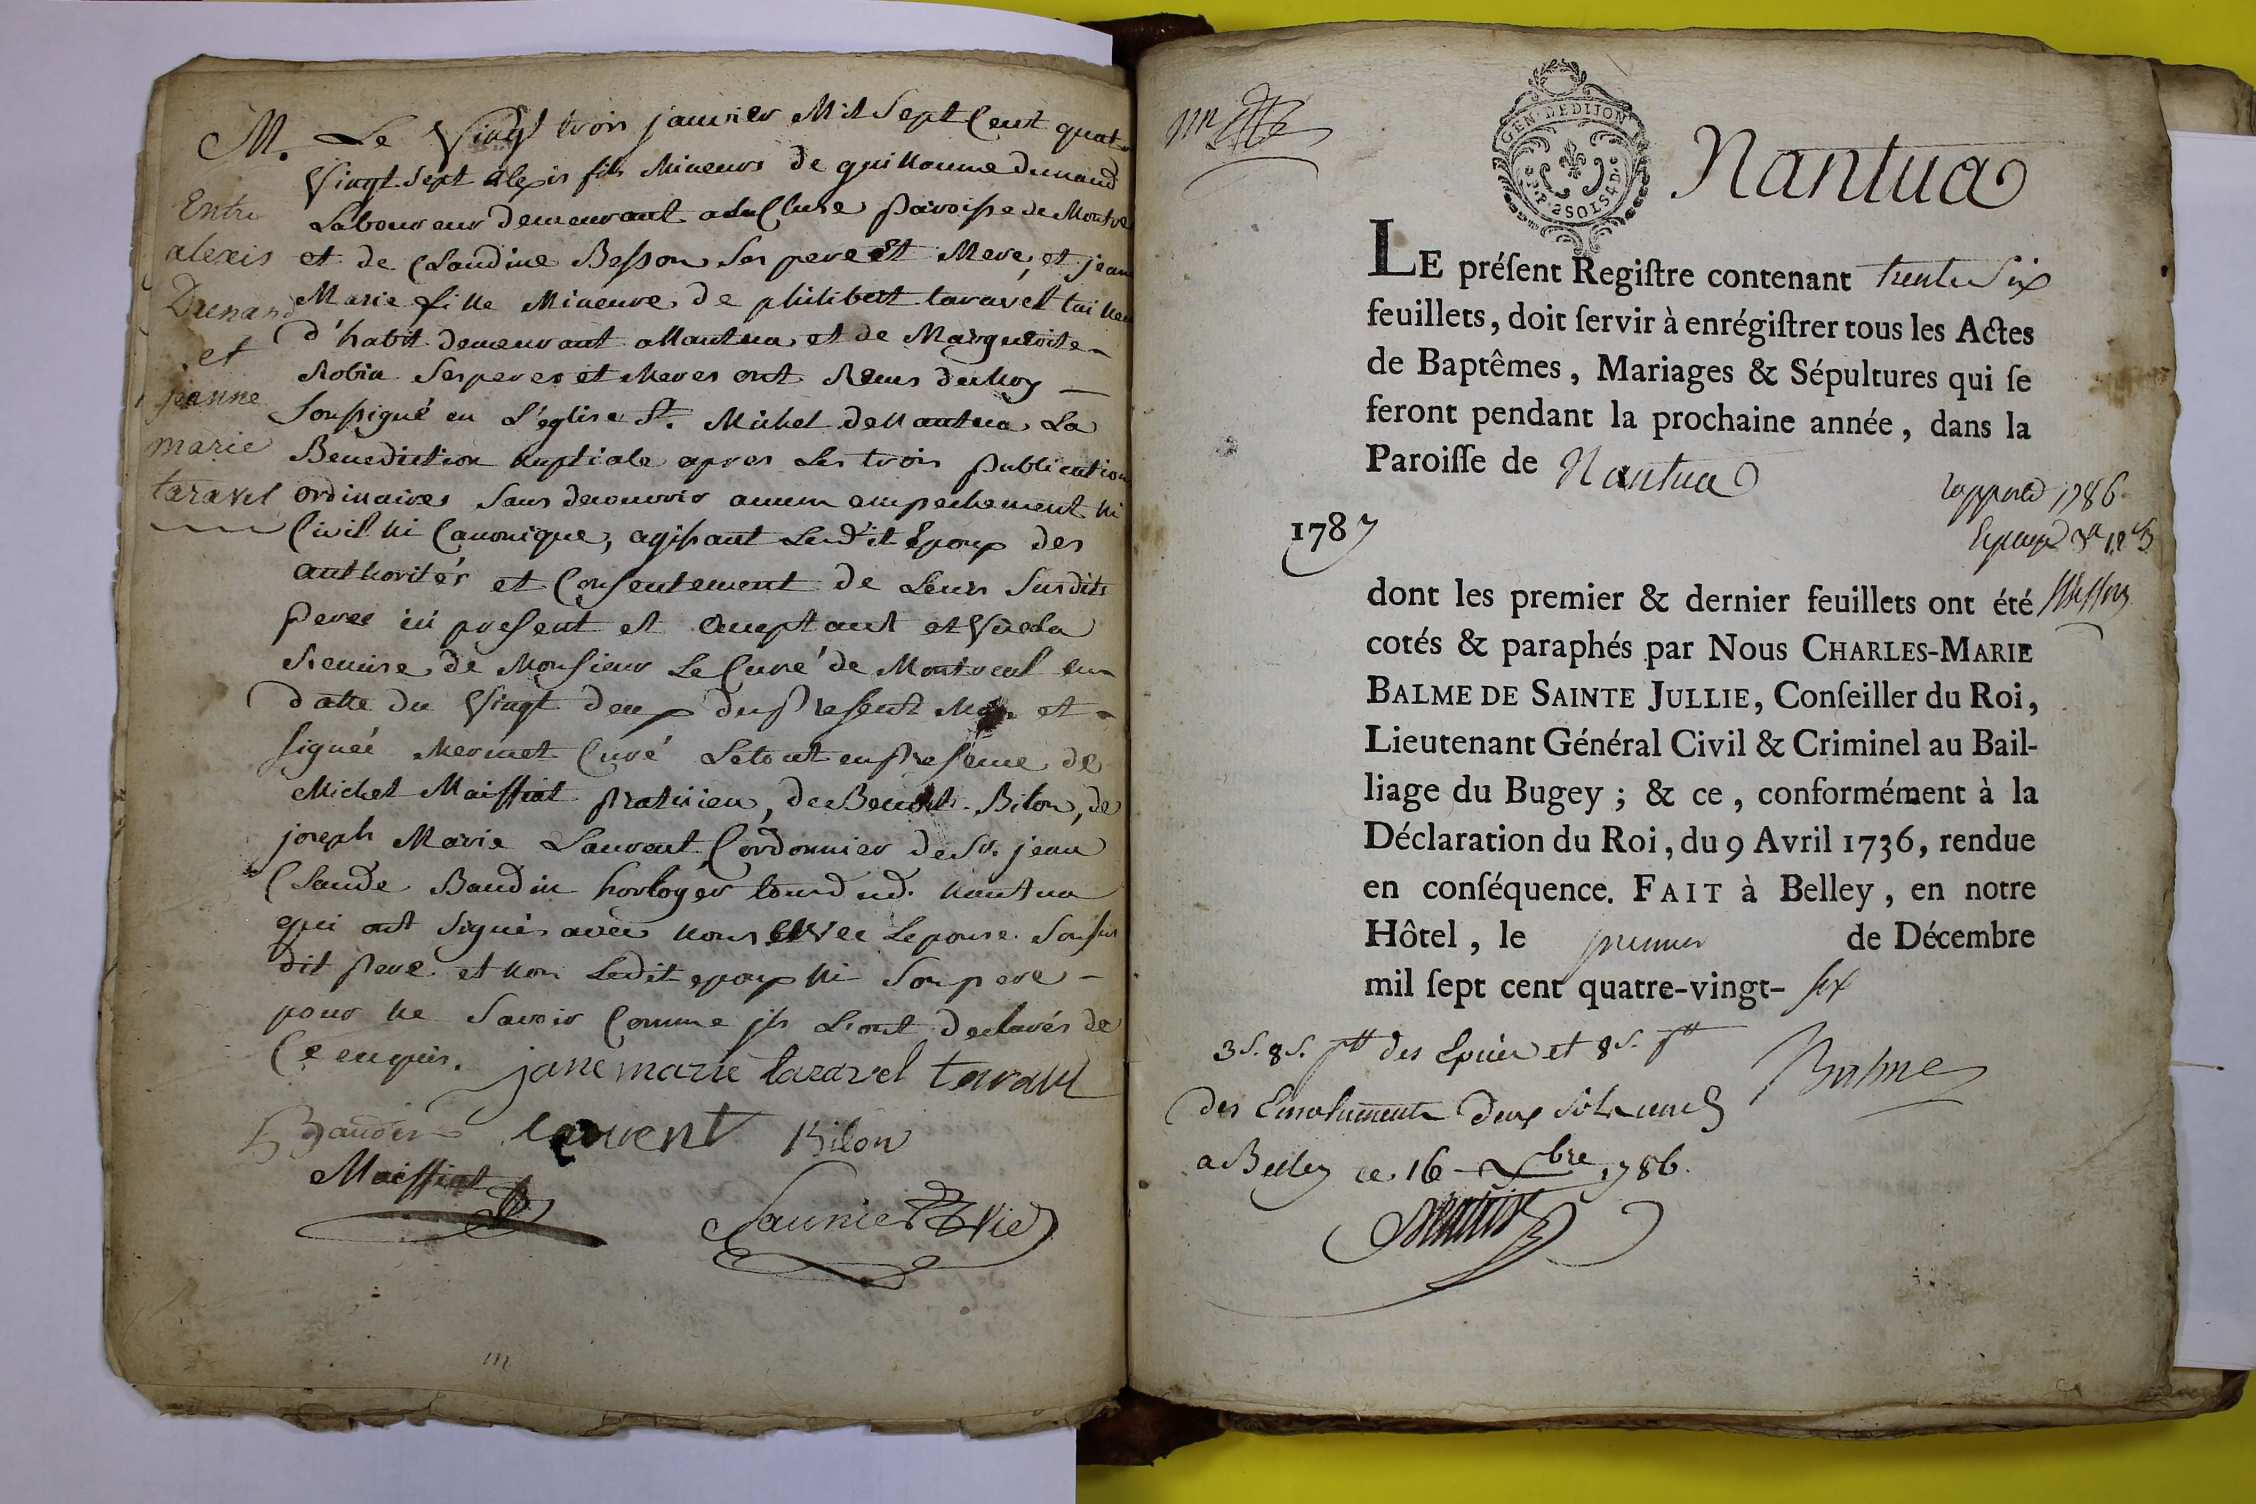 M.
Entre
alexis
Dunand
et
jeanne
marie
taravel
Le Vingt trois janvier Mil Sept Cent quatre
Vingt Sept alexis fils Mineur de guillaume dunand
Laboureur demeurant a la Cluse paroisse de Montre
et de Claudine Besson Ses pere Et Mere, et jeane
Marie fille Mineure de philibert taravel tailleu
d'habit demeurant a Nantua et de Margueritte
Robin Ses peres et Meres ont Reçus de Moy
Soussigné en L'église St. Michel de Nantua La
Benediction nuptiale apres Les trois publication
ordinaires Sans decouvrir aucun empechement ni
Civil ni Canonique, agissant Ledit Epoux des
authorités et Consentement de Leurs Susdits
peres ici present et acceptant et Vue la
Remise de Monsieur Le Curé de Montreal en
datte du Vingt deux du present Mois et
signée Mermet Curé Le tout en presence de
Michel Maissiat praticien, de Benoit Bilon, de
joseph Marie Laurent Cordonnier de Sr. jean
Claude Baudin horloger tous dud. Nantua
qui ont Signés avec nous avec Lepouse Son sus
dit pere et non Ledit epoux ni Son pere
pour ne Savoir Comme ils L'ont declarés de
Ce enquis. jane marie taravel taravel
Baudin laurent Bilon
Maissiat
Saunier Vic
GEN. DE DIJON
2 SOLS 4 D.
Nantua
LE préſent Regiſtre contenant trente Six
feuillets, doit ſervir à enrégiſtrer tous les Actes
de Baptêmes, Mariages & Sépultures qui ſe
feront pendant la prochaine année, dans la
Paroiſſe de Nantua
rapporté 1786
1787
dont les premier & dernier feuillets ont été
cotés & paraphés par Nous CHARLES-MARIE
BALME DE SAINTE JULLIE, Conſeiller du Roi,
Lieutenant Général Civil & Criminel au Bail-
liage du Bugey ; & ce, conformément à la
Déclaration du Roi, du 9 Avril 1736, rendue
en conſéquence. FAIT à Belley, en notre
Hôtel, le premier de Décembre
mil ſept cent quatre-vingt- six
3 s. 8 s. pr des Epices et 8 s. pr
Balme
des Emoluments deux sols
a Belley ce 16 Xbre 1786.